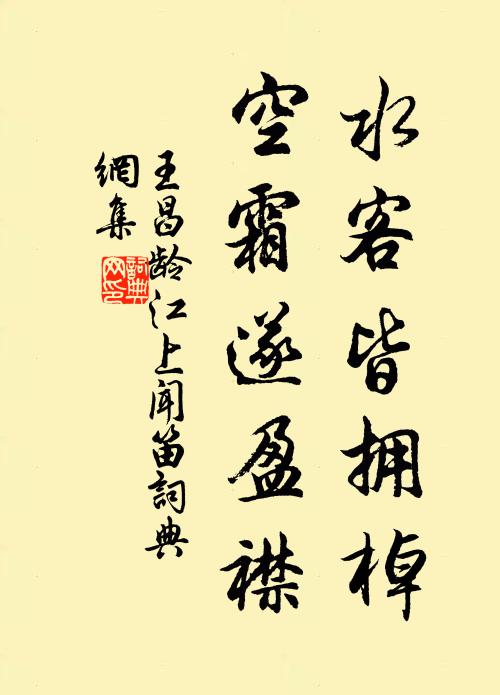 水客皆拥棹
空霜遂盈襟
王昌龄江上闻笛詞典
網集
詞典网印